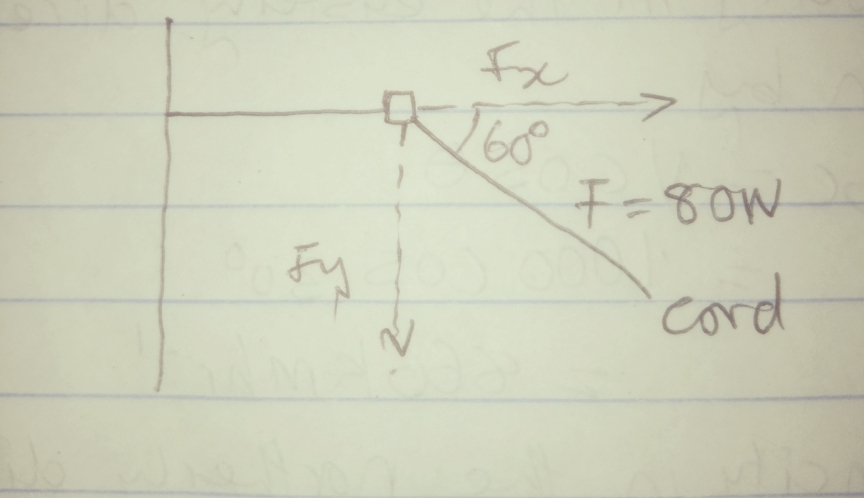 Fx
60°
F = 80N
Fy
cord